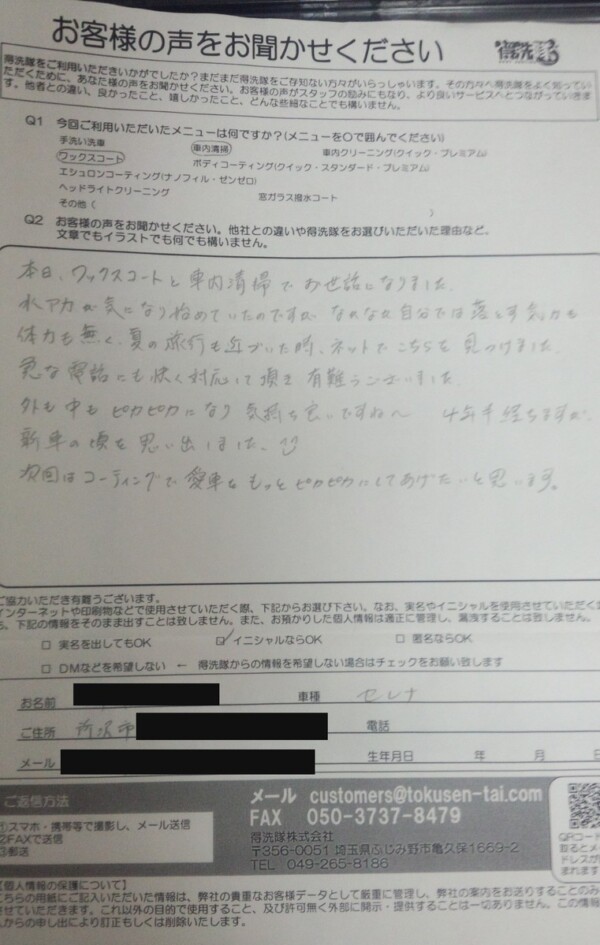 お客様の声をお聞かせください
得洗隊
得洗隊をご利用いただきいかがでしたか?まだまだ得洗隊をご存知ない方々がいらっしゃいます。その方々へ得洗隊をよく知ってい
ただくために、あなた様の声をお聞かせください。お客様の声がスタッフの励みにもなり、より良いサービスへとつながっていきま
す。他者との違い、良かったこと、嬉しかったこと、どんな些細なことでも構いません。
Q1 今回ご利用いただいたメニューは何ですか?(メニューを○で囲んでください)
手洗い洗車 車内清掃 車内クリーニング(クイック・プレミアム)
ワックスコート ボディコーティング(クイック・スタンダード・プレミアム)
エシュロンコーティング(ナノフィル・ゼンゼロ)
ヘッドライトクリーニング 窓ガラス撥水コート
その他( )
Q2 お客様の声をお聞かせください。他社との違いや得洗隊をお選びいただいた理由など。
文章でもイラストでも何でも構いません。
本日、ワックスコートと車内清掃でお世話になりました。
水アカが気になり始めていたのですが なかなか自分では落とす気力も
体力も無く、夏の旅行も近づいた時、ネットでこちらを見つけました。
急な電話にも快く対応して頂き 有難うございました。
外も中もピカピカになり 気持ち良いですね〜 4年半経ちますが、
新車の頃を思い出しました。
次回はコーティングで愛車をもっとピカピカにしてあげたいと思います。
ご協力いただき有難うございます。
インターネットや印刷物などで使用させていただく際、下記からお選び下さい。なお、実名やイニシャルを使用させていただく
も、下記の情報をそのまま出すことは致しません。また、お預かりした個人情報は適正に管理し、漏洩することは致しません。
□ 実名を出してもOK ☑ イニシャルならOK □ 匿名ならOK
□ DMなどを希望しない ← 得洗隊からの情報を希望しない場合はチェックをお願い致します
お名前 車種 セレナ
ご住所 所沢市 電話
メール 生年月日 年 月 日
ご返信方法
①スマホ・携帯等で撮影し、メール送信
②FAXで送信
③郵送
メール customers@tokusen-tai.com
FAX 050-3737-8479
得洗隊株式会社
〒356-0051 埼玉県ふじみ野市亀久保1669-2
TEL 049-265-8186
QRコード
取るとメー
ドレスが
まれます
【個人情報の保護について】
こちらの用紙にご記入いただいた情報は、弊社の貴重なお客様データとして厳重に管理し、弊社の案内をお送りすることのみ
させていただきます。これ以外の目的で使用すること、及び許可無く外部に開示・提供することは一切ありません。この情報
人からの申し出により訂正もしくは削除いたします。